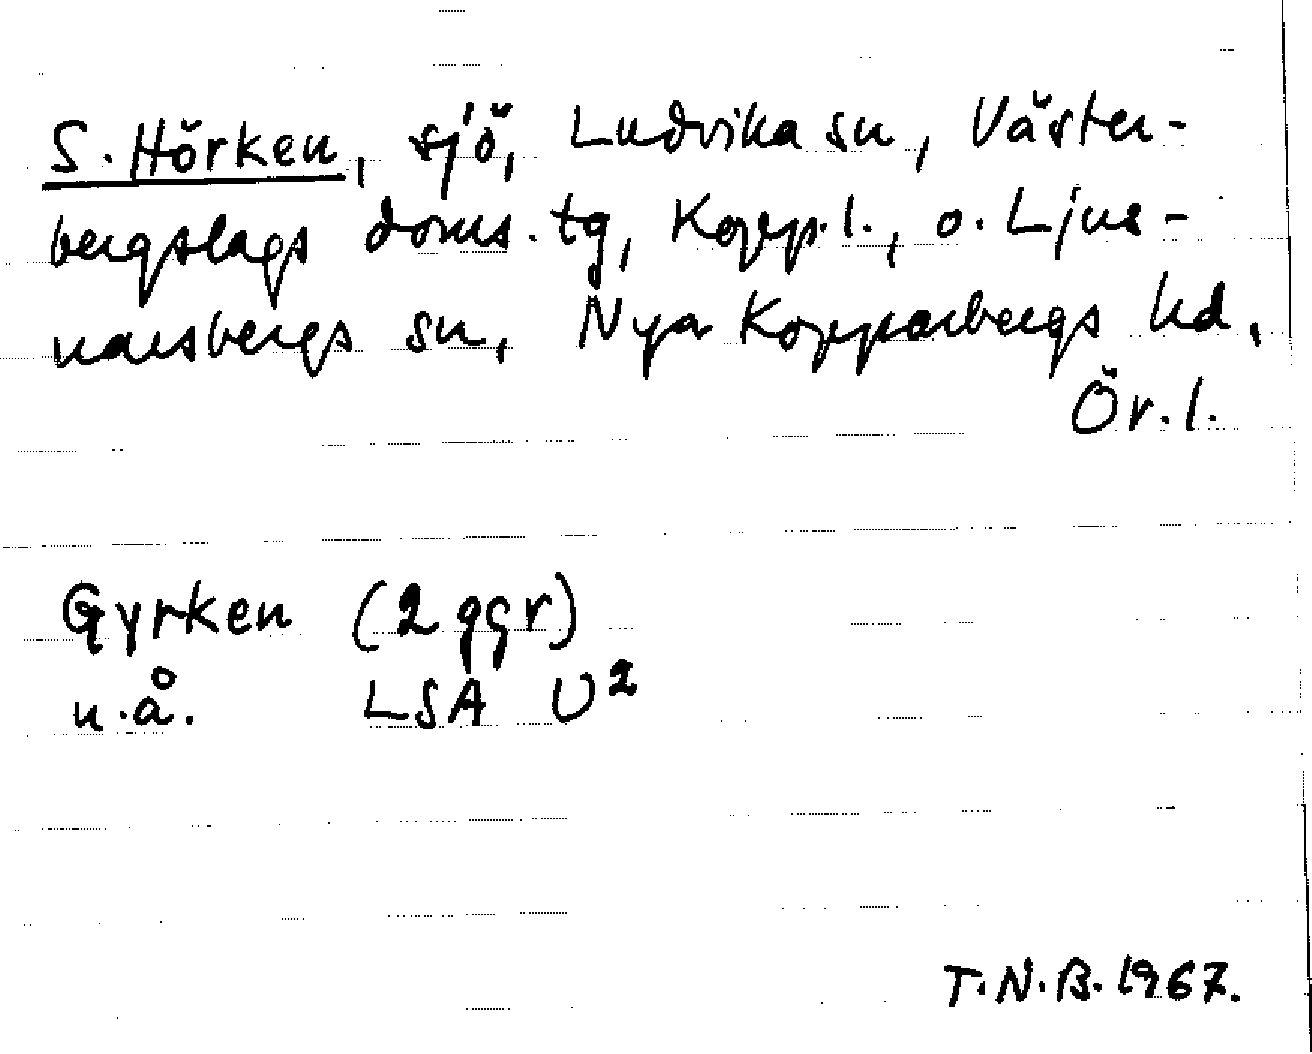 S. Hörken, sjö, Ludvika sn, Väster-
bergslags doms. tg, Kopp. l., o. Ljus-
narsbergs sn, Nya Kopparbergs hd,
Ör. l.
Gyrken (2 ggr)
u.å. LSA U²
T.N.B. 1967.